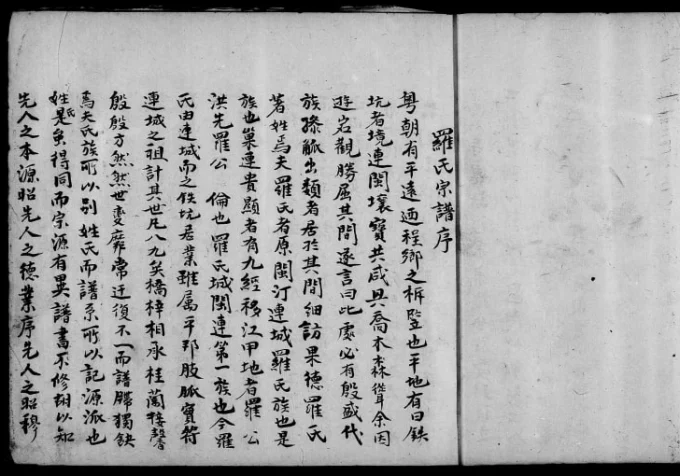 羅氏宗譜序
粤朝有平遠迺程鄉之析壂也平地有曰鉄
坑者境連閩壤寶共咸興喬木森聳余因
遊宕觀勝屆其間遂言曰此處必有殷盛代
族滕觚出類者居於其間細訪果德羅氏
著姓焉夫羅氏者原閩汀連城羅氏族也是
族也巢連貴顯者有九經移江甲地者羅公
洪先羅公 倫也羅氏城閩連第一族也今羅
氏由連城而之鉄坑居業雖属平邦肢脈實符
連城之祖計其世凡八九矣橋梓相承桂蘭接馨
殷殷方然然世变靡常迁復不一而譜牒獨缺
焉夫氏族所以别姓氏而譜系所以記源派也
姓氏是矣得同而宗源有異譜書不修胡以知
先人之本源昭先人之德業序先人之昭穆